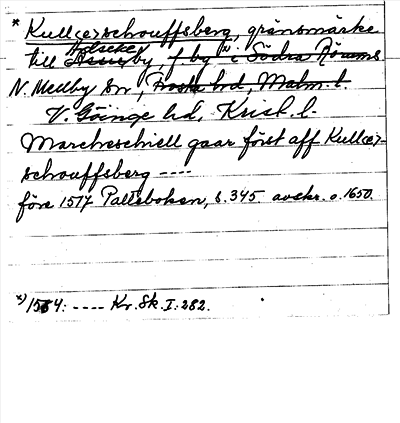 * Kull(e)rschouffsberg, gränsmärke
till Adseke by, f by i Södra Rörums
N. Mellby sn, Frosta hd, Malm. l.
V. Göinge hd, Krist. l.
Marcheschiell gaar först aff Kull(e)r-
schouffsberg ----
före 1517 Palleboken, s. 345 avskr. o. 1650.
x) 1584: ---- Kr. Sk. I: 282.